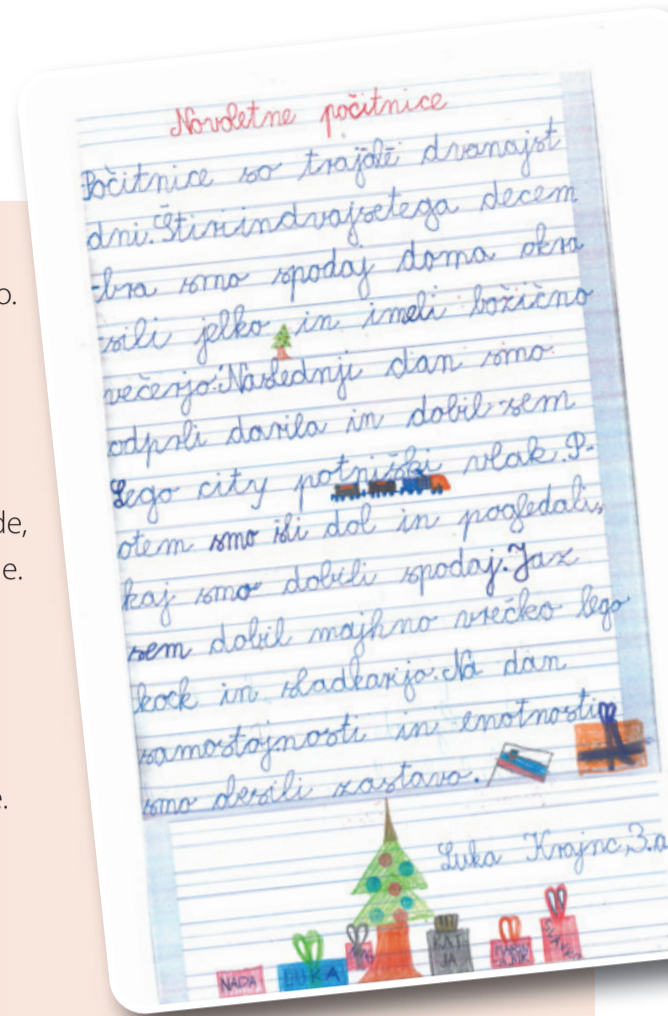 Novoletne počitnice
Počitnice so trajale dvanajst
dni. Štiriindvajsetega decem
-bra smo spodaj doma okra
-sili jelko in imeli božično
večerjo. Naslednji dan smo
odprli darila in dobil sem
Lego city potniški vlak. P-
otem smo šli dol in pogledali,
kaj smo dobili spodaj. Jaz
sem dobil majhno vrečko lego
kock in sladkarijo. Na dan
samostojnosti in enotnosti
smo obesili zastavo.
Luka Krajnc, 3.a
NADA
LUKA
KAT
JA
o.
de,
e.
e.